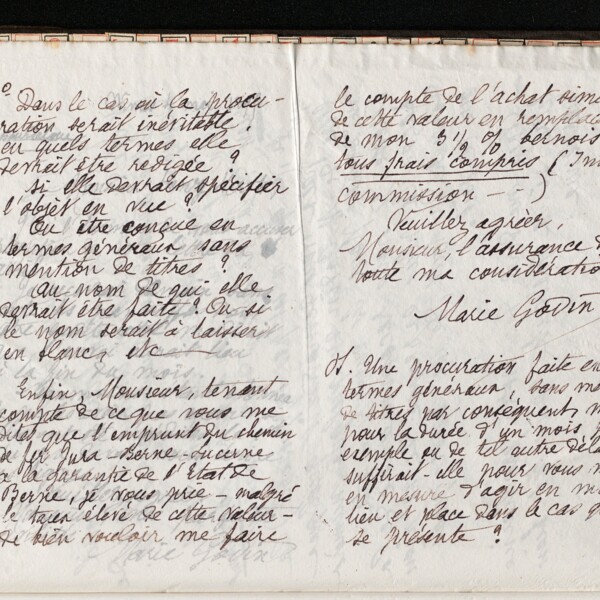 o Dans le cas où la procu-
ration serait inévitable.
en quels termes elle
devrait être redigée ?
Si elle devrait spécifier
l'objet en vue ?
Ou être conçue en
termes généraux sans
mention de titres ?
Au nom de qui elle
devrait être faite ? Ou si
le nom serait à laisser
en blanc, etc
Enfin, Monsieur, tenant
compte de ce que vous me
dites que l'emprunt du chemin
de fer Jura-Berne-Lucerne
a la garantie de l'Etat de
Berne, je vous prie - malgré
le taux élevé de cette valeur -
de bien vouloir me faire
le compte de l'achat
de cette valeur en
de mon 3 1/2 % bernois
tous frais compris (
commission - - )
Veuillez agréer,
Monsieur, l'assurance
toute ma considération
Marie Godin
Une procuration faite en
termes généraux, sans
de titres par conséquent,
pour la durée d'un mois
exemple ou de tel autre
suffirait-elle pour vous
en mesure d'agir en
lieu et place dans le cas
se présente ?
Marie Godin